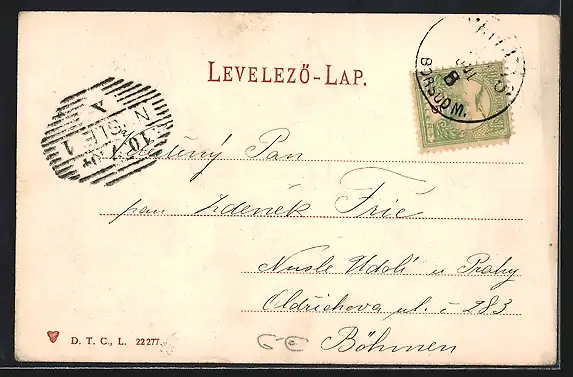 LEVELEZŐ-LAP.
BORSOD M.
NUSLE 1
Pan
pan Zdeněk Frič
Nusle Údolí u Prahy
Oldřichova ul. č 283
Böhmen
6€
D. T. C., L. 22277.